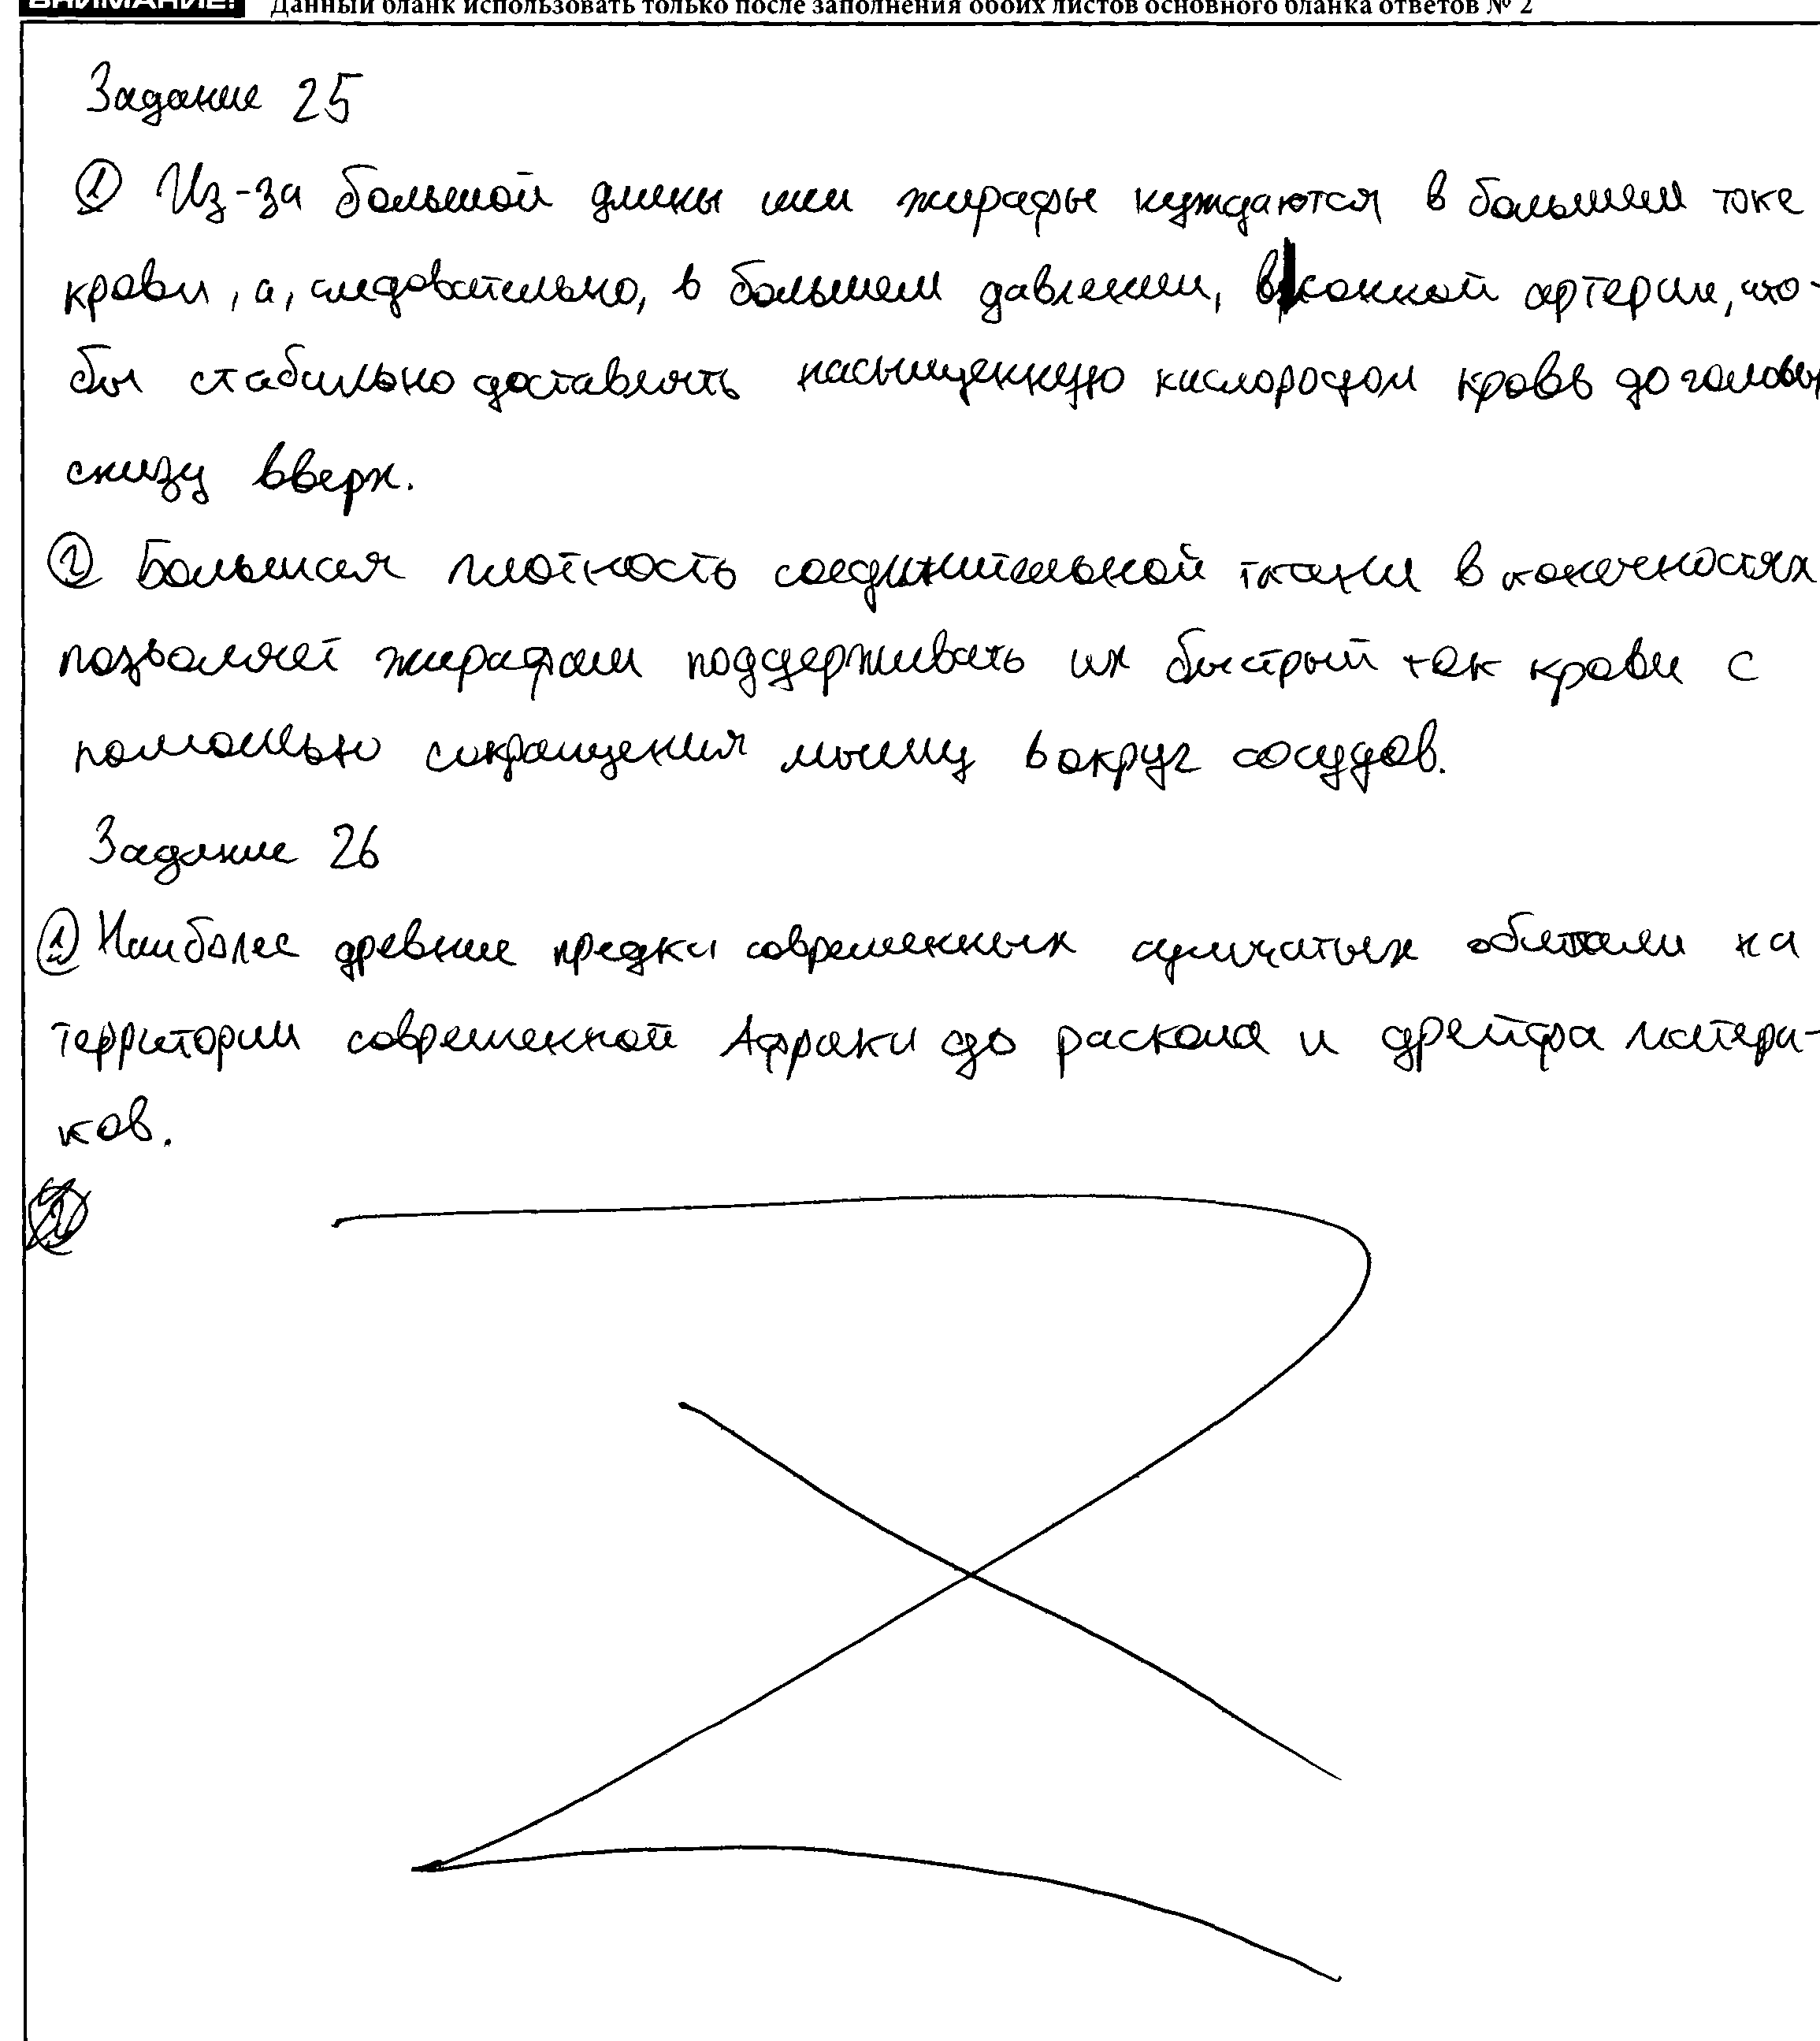 ВНИМАНИЕ! Данный бланк использовать только после заполнения обоих листов основного бланка ответов № 2
Задание 25
① Из-за большой длины шеи жирафы нуждаются в большем токе
крови, а, следовательно, в большем давлении, в сонной артерии, что-
бы стабильно доставлять насыщенную кислородом кровь до головы
снизу вверх.
② Большая плотность соединительной ткани в конечностях
позволяет жирафам поддерживать их быстрый ток крови с
помощью сокращения мышц вокруг сосудов.
Задание 26
① Наиболее древние предки современных сумчатых обитали на
территории современной Афраки до раскола и дрейфа матери-
ков.